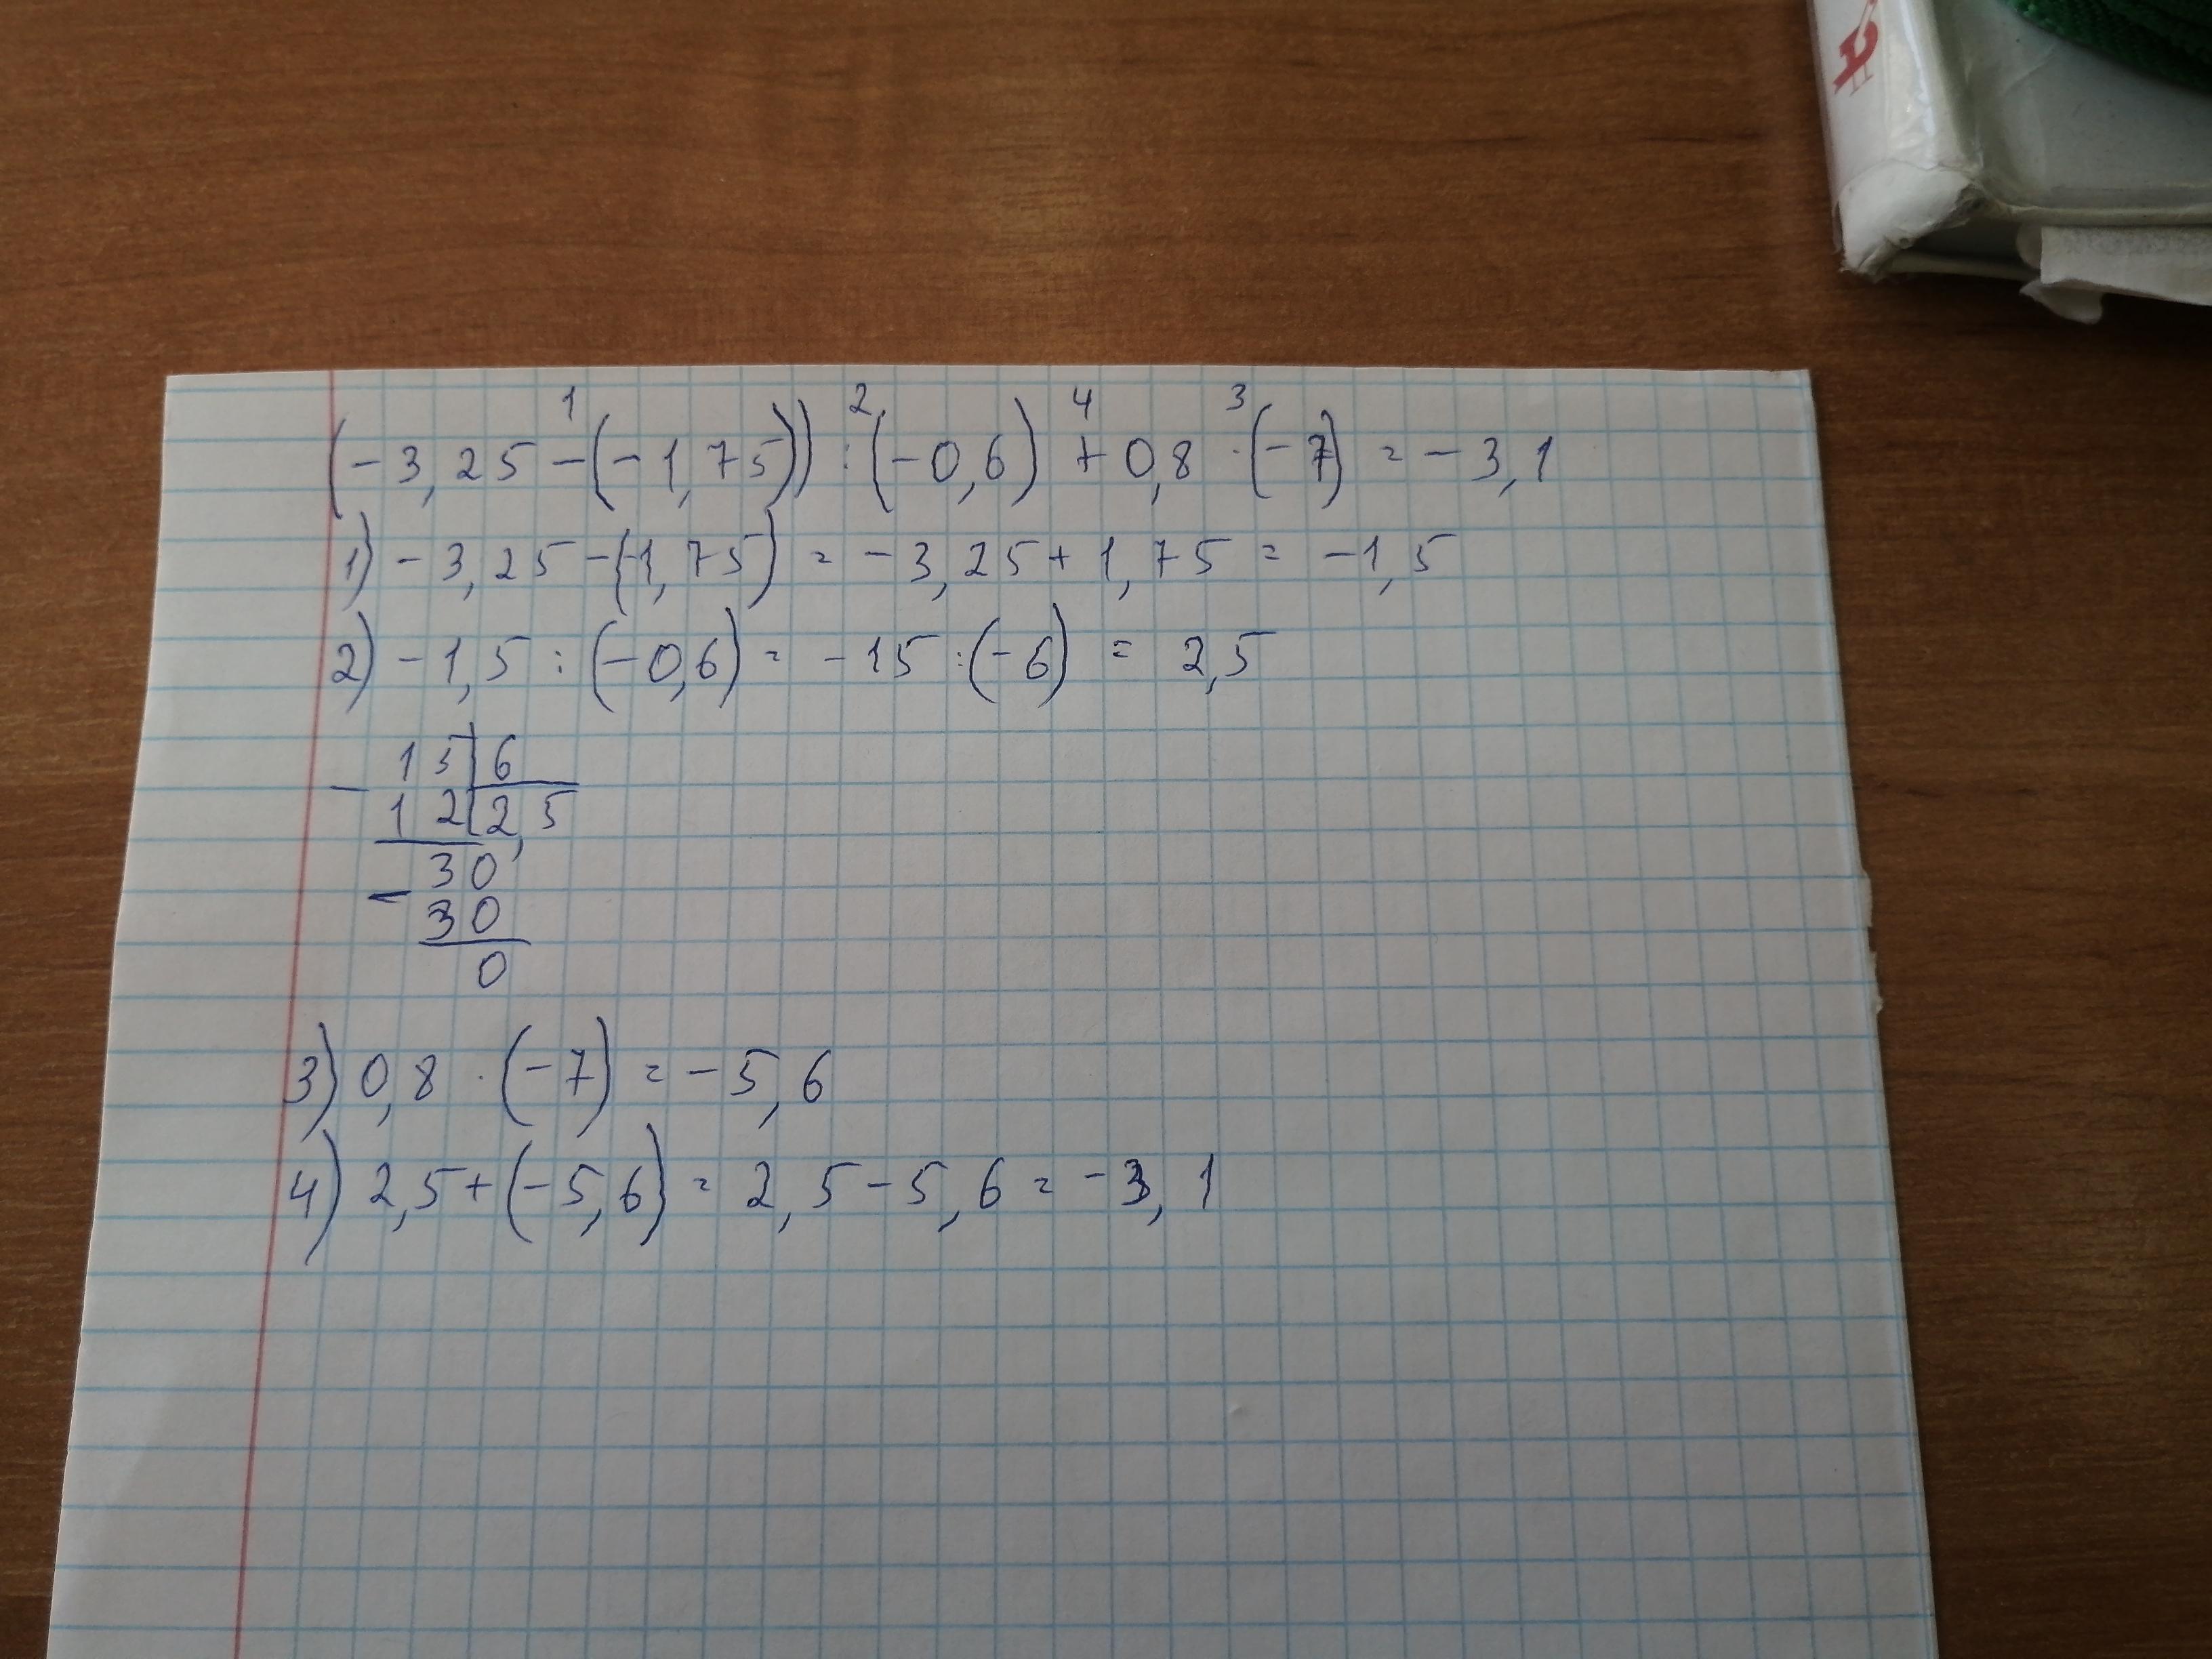 1 2 4 3
(-3,25-(-1,75)):(-0,6)+0,8·(-7)=-3,1
1) -3,25-(-1,75)=-3,25+1,75=-1,5
2) -1,5:(-0,6)=-15:(-6)=2,5
- 15|6
12|2,5
- 30
30
0
3) 0,8·(-7)=-5,6
4) 2,5+(-5,6)=2,5-5,6=-3,1